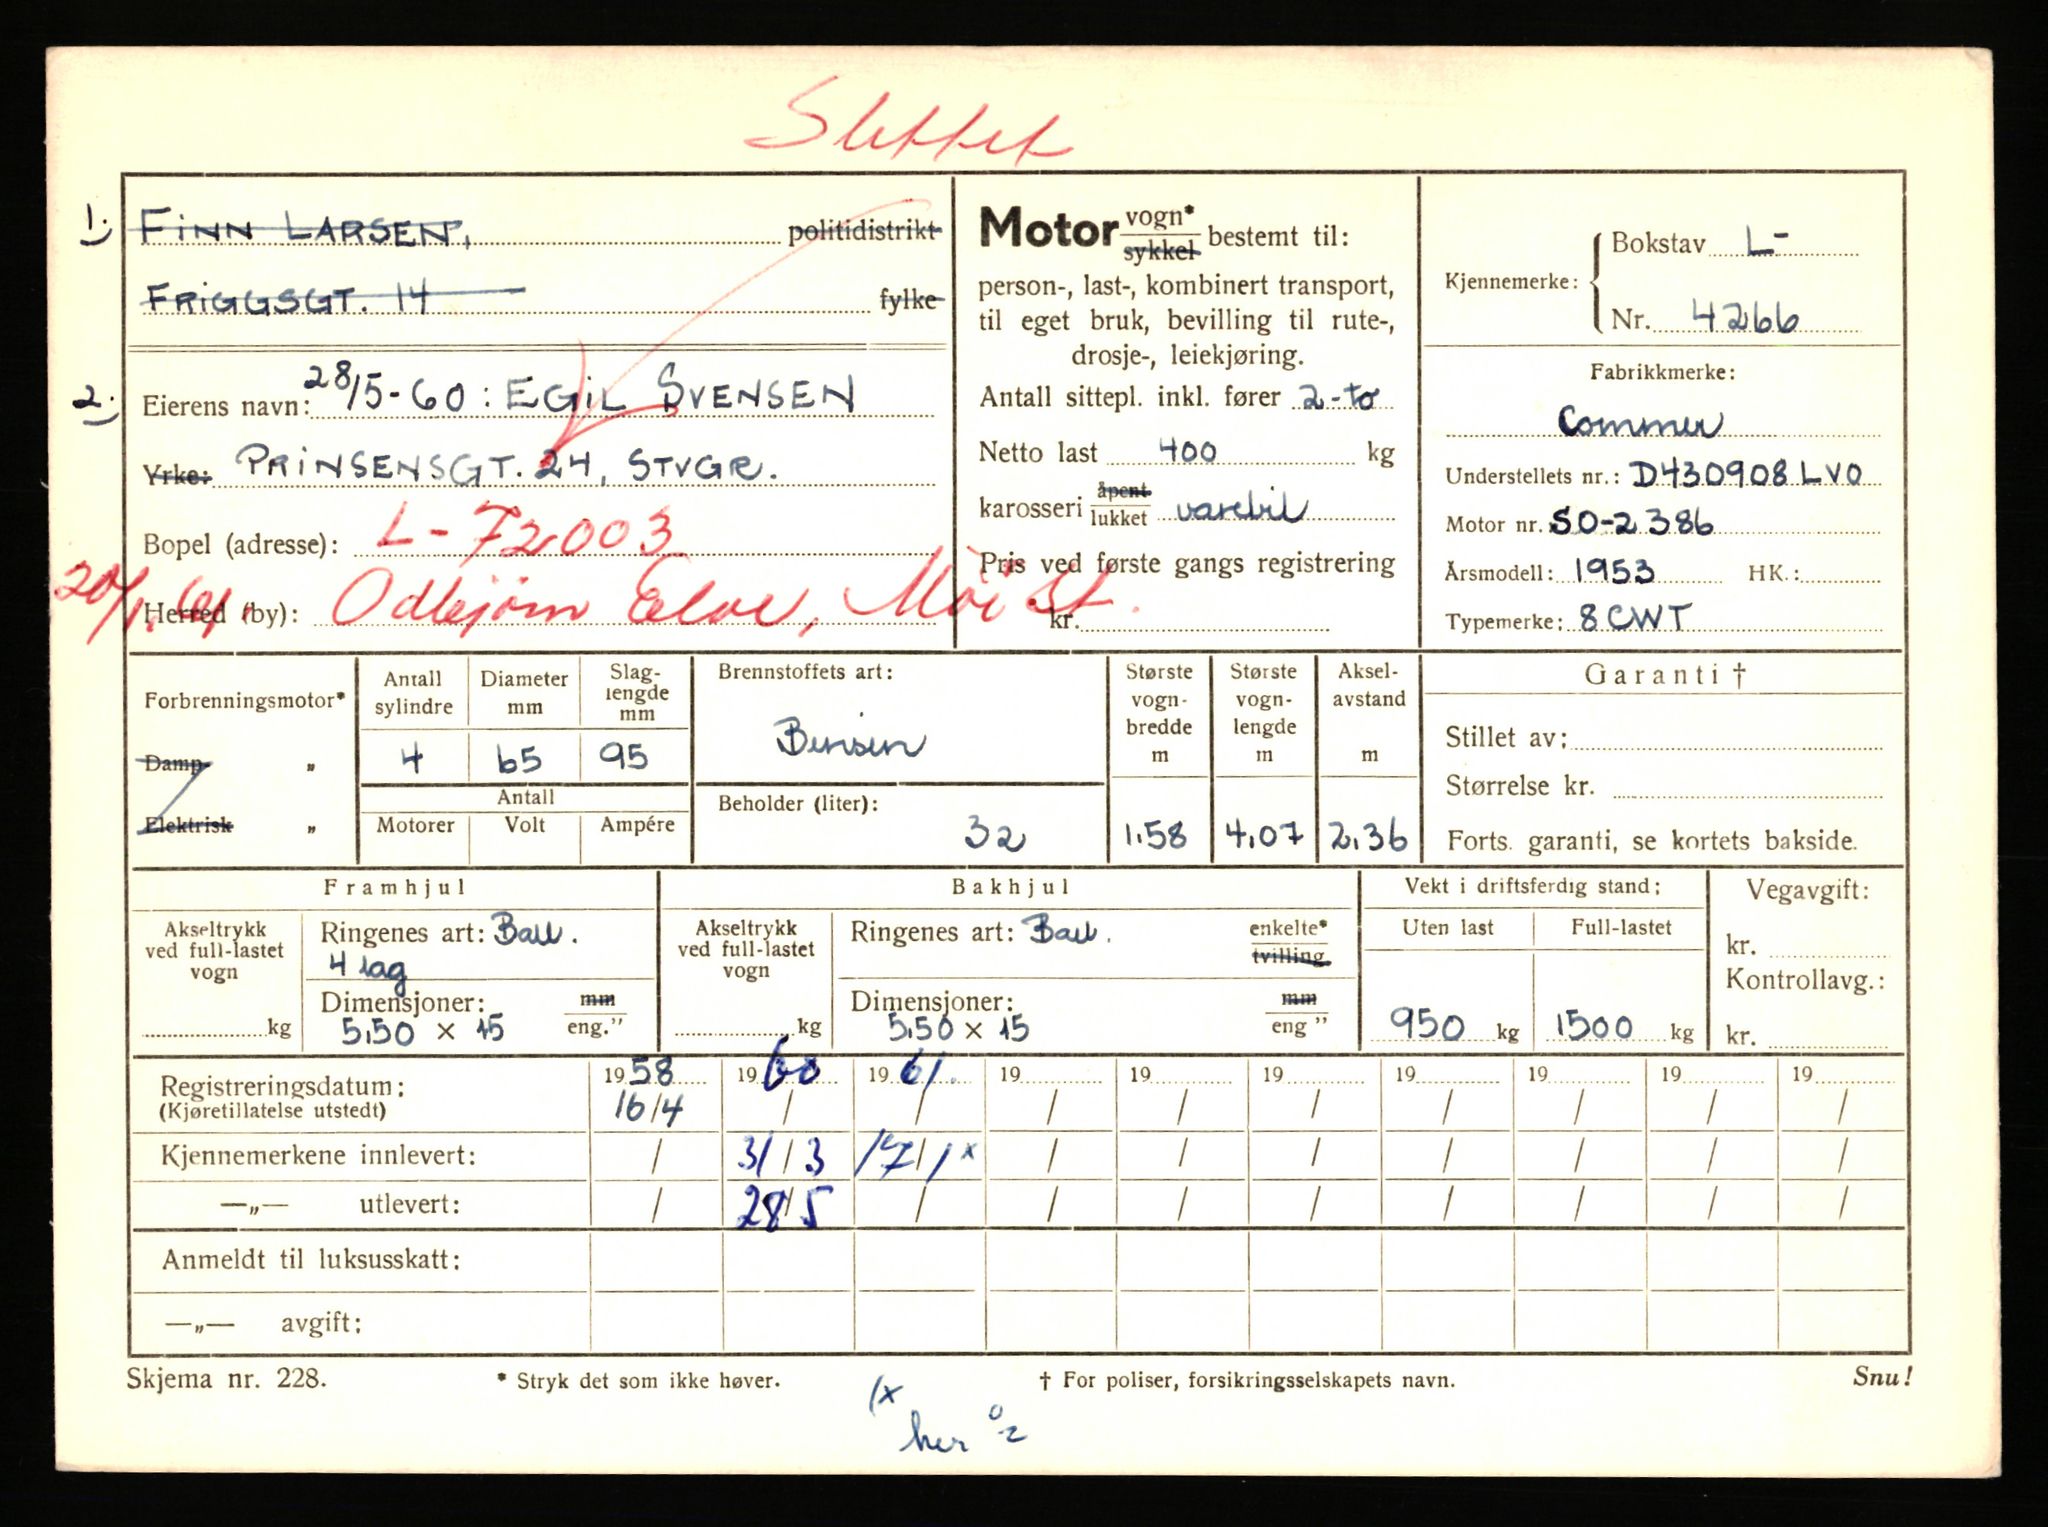 Slettet
1. FINN LARSEN, politidistrikt
FRIGGSGT. 14 fylke
2. Eierens navn: 28/5-60: EGIL SVENSEN
Yrke: PRINSENSGT. 24, STVGR.
Bopel (adresse): L-72003
20/1.61. Herred (by): Odbjørn Eelve, Moi St.
Motor vogn* sykkel bestemt til:
person-, last-, kombinert transport,
til eget bruk, bevilling til rute-,
drosje-, leiekjøring.
Antall sittepl. inkl. fører 2-to
Netto last 400 kg
karosseri åpent lukket varebil
Pris ved første gangs registrering
kr.
Kjennemerke: Bokstav L-
Nr. 4266
Fabrikkmerke:
Commer
Understellets nr.: D430908LVO
Motor nr. SO-2386
Årsmodell: 1953 HK.:
Typemerke: 8 CWT
Forbrenningsmotor*
Damp "
Elektrisk "
Antall sylindre Diameter mm Slaglengde mm
4 65 95
Antall
Motorer Volt Ampére
Brennstoffets art:
Bensin
Beholder (liter):
32
Største vogn-bredde m
1.58
Største vogn-lengde m
4.07
Aksel-avstand m
2.36
Garanti †
Stillet av:
Størrelse kr.
Forts. garanti, se kortets bakside.
Framhjul
Akseltrykk ved full-lastet vogn kg
Ringenes art: Ball.
4 lag
Dimensjoner: mm
5,50 x 15 eng."
Bakhjul
Akseltrykk ved full-lastet vogn kg
Ringenes art: Ball. enkelte* tvilling
Dimensjoner: mm
5,50 x 15 eng "
Vekt i driftsferdig stand:
Uten last Full-lastet
950 kg 1500 kg
Vegavgift:
kr.
Kontrollavg.:
kr.
Registreringsdatum: 1958 1960 1961. 19 19 19 19 19 19 19
(Kjøretillatelse utstedt) 16/4 / / / / / / / / /
Kjennemerkene innlevert: / 31/3 17/1 x / / / / / / /
—„— utlevert: / 28/5 / / / / / / / /
Anmeldt til luksusskatt:
—„— avgift:
Skjema nr. 228. * Stryk det som ikke høver. † For poliser, forsikringsselskapets navn. Snu!
(x
her